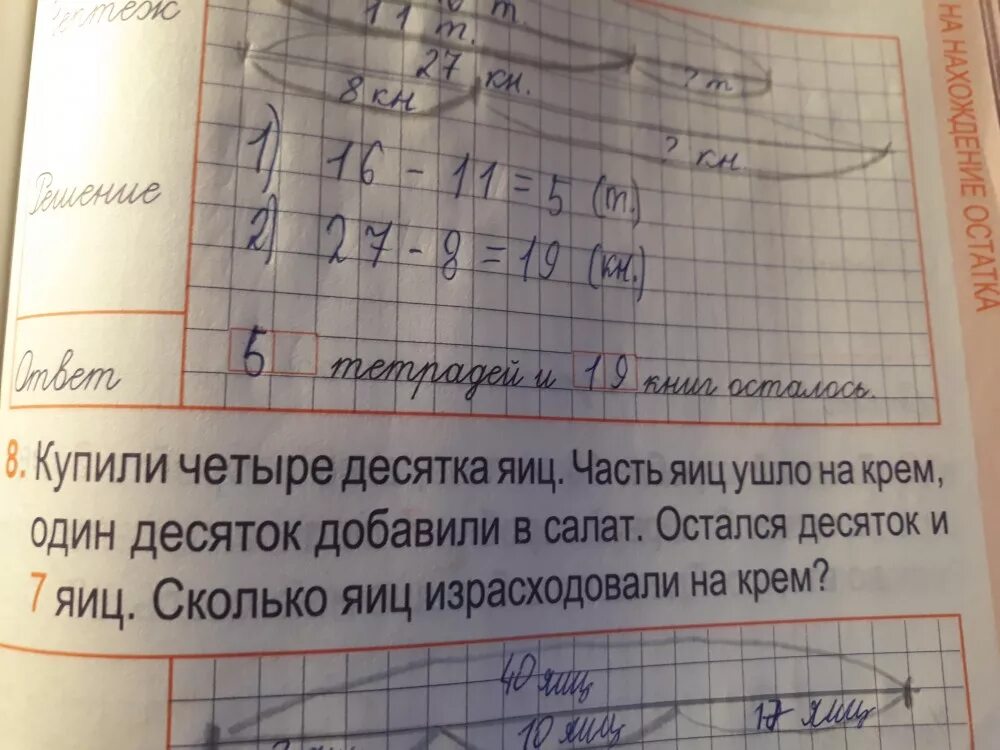 Чертёж
11 т.
т.
27 кн.
? т
8 кн
? кн.
НА НАХОЖДЕНИЕ ОСТАТКА
Решение
1) 16 - 11 = 5 (т.)
2) 27 - 8 = 19 (кн.)
Ответ
5 тетрадей и 19 книг осталось.
8. Купили четыре десятка яиц. Часть яиц ушло на крем,
один десяток добавили в салат. Остался десяток и
7 яиц. Сколько яиц израсходовали на крем?
40 яиц
10 яиц
17 яиц